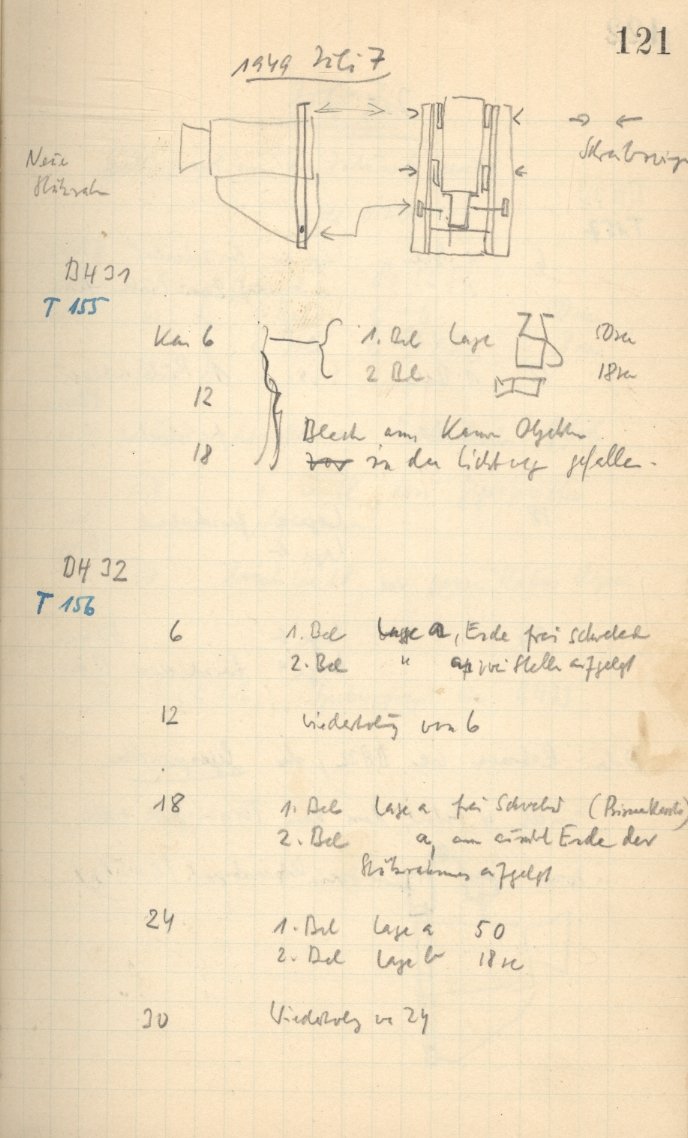 121
1949 Juli 7
Neue
BH 31
T 155
Kam 6
1. Bel Lage
50 sec
2 Bel.
18 sec
12
18
Blech am Kamm Objektiv
in der Lichtweg gefallen.
BH 32
T 156
6 1. Bel Lage a, Ende frei schwebend
2. Bel " a, zwei Stellen aufgelegt
12 Wiederholung von 6
18 1. Bel Lage a frei Schwebd
2. Bel a, am Ende der
Stützrahmens aufgelegt
24 1. Bel Lage a 50
2. Bel Lage b 18 sec
30 Wiederholg von 24